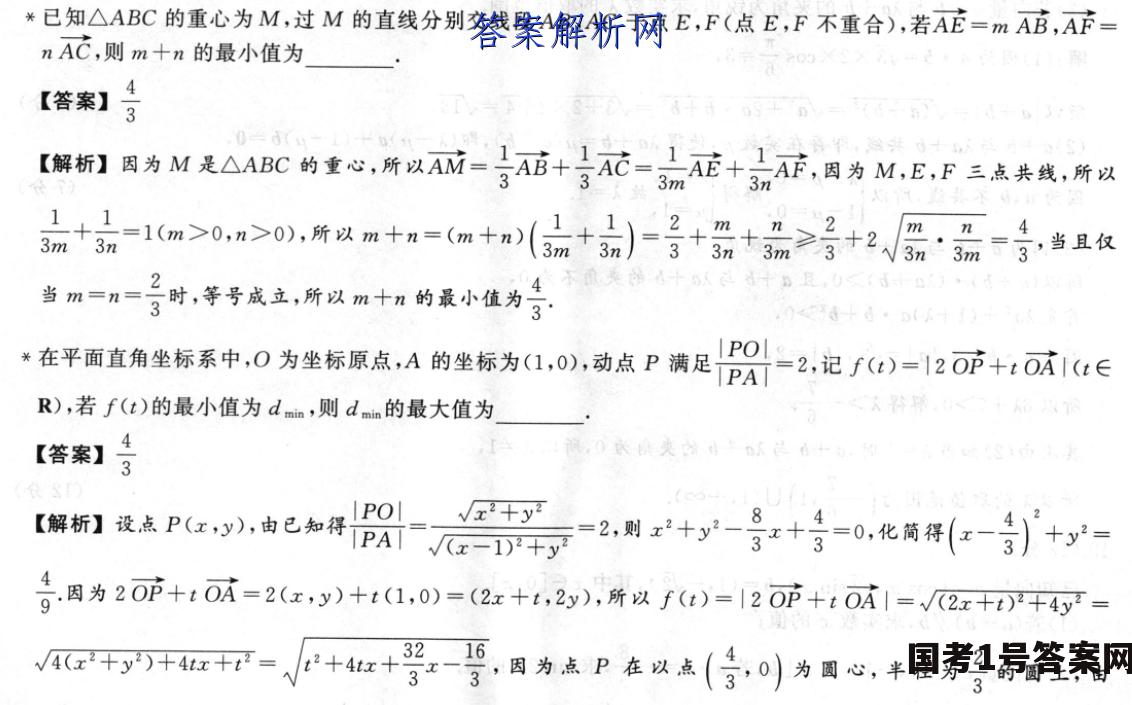 *已知△ABC 的重心为 M,过 M 的直线分别交线段 AB,AC 于点 E,F(点 E,F 不重合),若AE=m AB,AF=
n AC,则 m+n 的最小值为______.
答案解析网
【答案】4/3
【解析】因为 M 是△ABC 的重心,所以AM=1/3 AB+1/3 AC=1/(3m) AE+1/(3n) AF,因为 M,E,F 三点共线,所以
1/(3m)+1/(3n)=1(m>0,n>0),所以 m+n=(m+n)(1/(3m)+1/(3n))=2/3+m/(3n)+n/(3m)≥2/3+2√(m/(3n)·n/(3m))=4/3,当且仅
当 m=n=2/3时,等号成立,所以 m+n 的最小值为4/3.
*在平面直角坐标系中,O 为坐标原点,A 的坐标为(1,0),动点 P 满足|PO|/|PA|=2,记 f(t)=|2 OP+t OA|(t∈
R),若 f(t)的最小值为 d min,则 d min的最大值为______.
【答案】4/3
【解析】设点 P(x,y),由已知得|PO|/|PA|=√(x²+y²)/√((x-1)²+y²)=2,则 x²+y²-8/3 x+4/3=0,化简得(x-4/3)²+y²=
4/9.因为 2 OP+t OA=2(x,y)+t(1,0)=(2x+t,2y),所以 f(t)=|2 OP+t OA|=√((2x+t)²+4y²)=
√(4(x²+y²)+4tx+t²)=√(t²+4tx+32/3 x-16/3),因为点 P 在以点(4/3,0)为圆心,半径为2/3的圆上,由
国考1号答案网